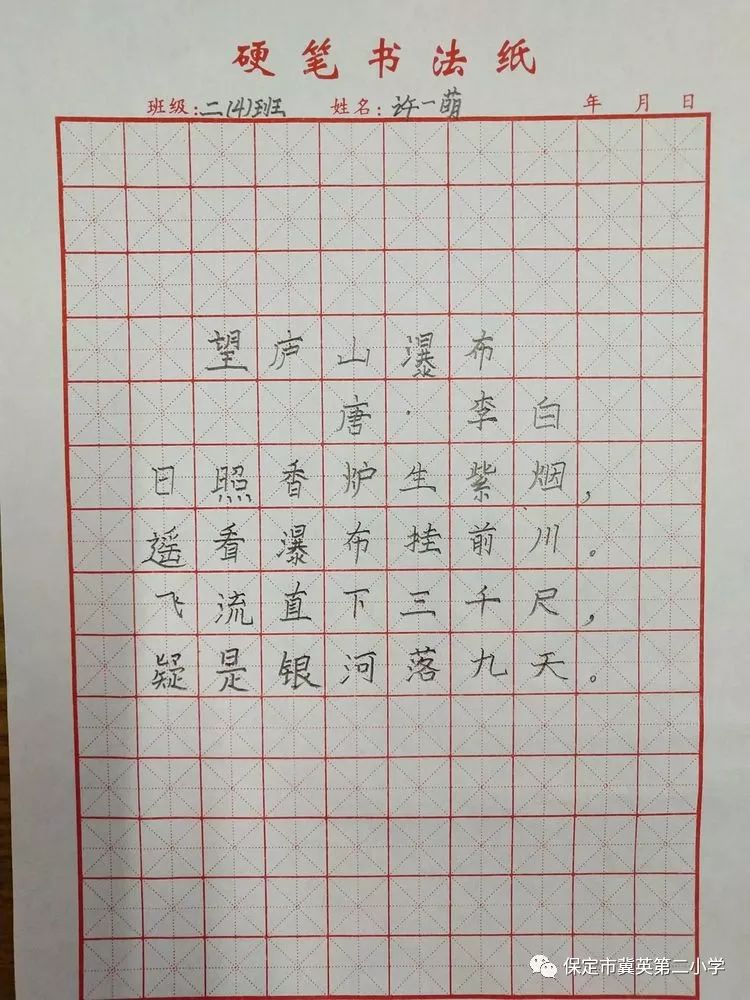 硬笔书法纸
班级:二(4)班 姓名:许一萌 年 月 日
望庐山瀑布
唐·李白
日照香炉生紫烟,
遥看瀑布挂前川。
飞流直下三千尺,
疑是银河落九天。
保定市冀英第二小学